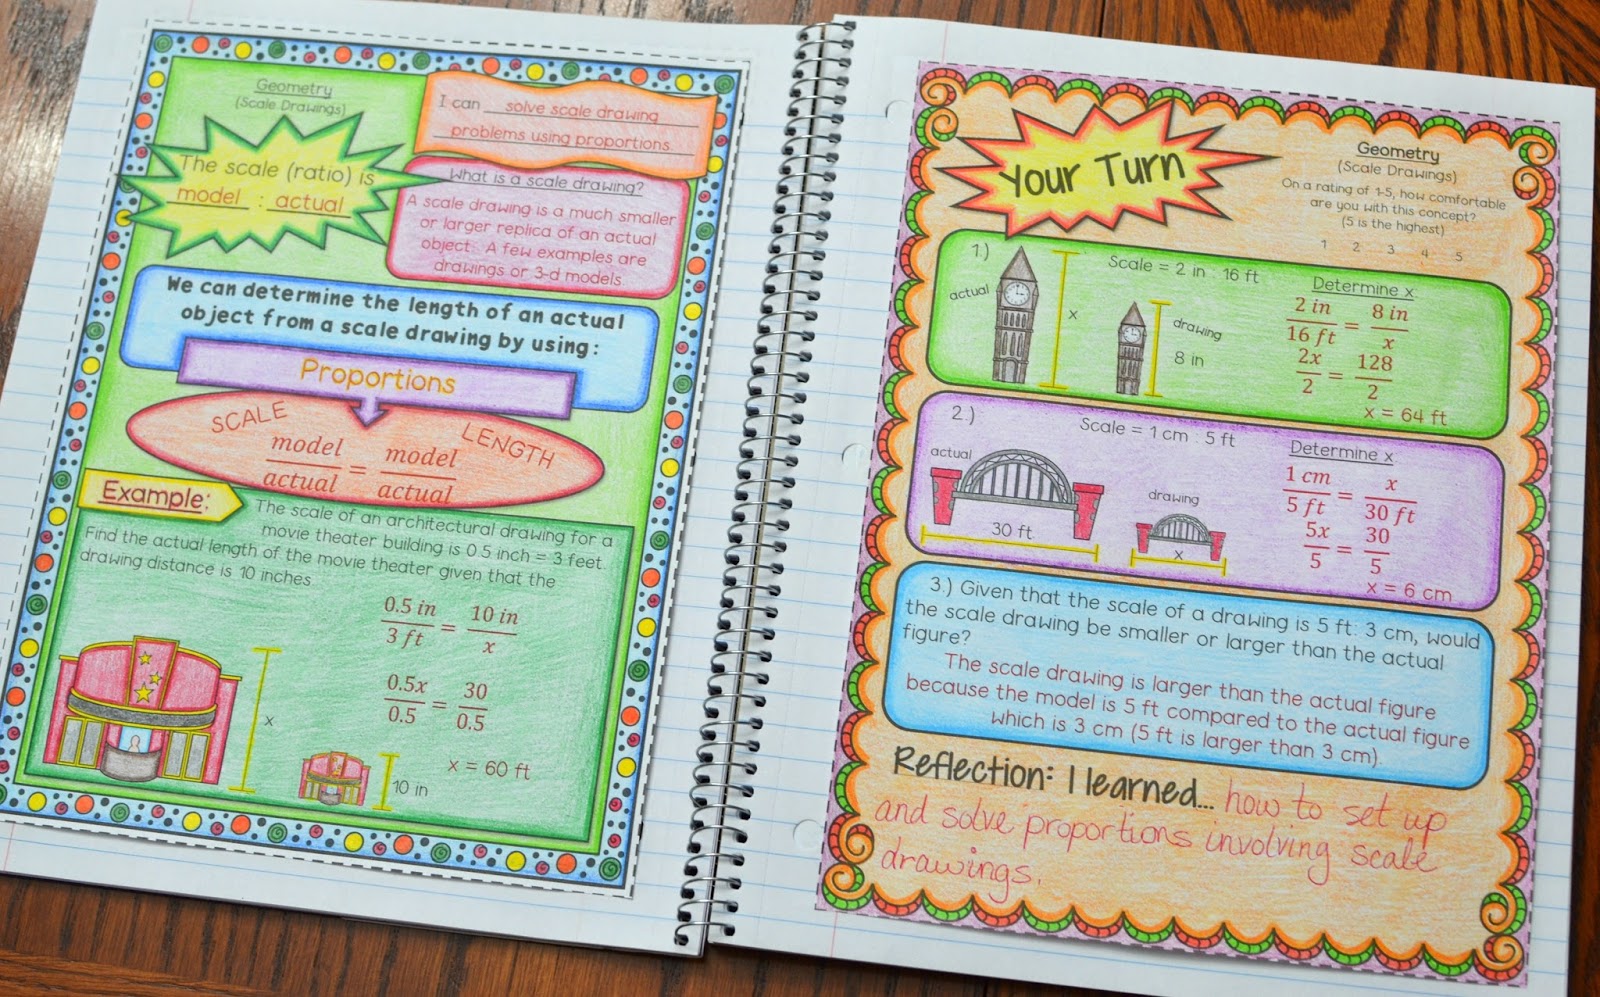 Geometry
(Scale Drawings)
The scale (ratio) is
model : actual
I can solve scale drawing
problems using proportions.
What is a scale drawing?
A scale drawing is a much smaller
or larger replica of an actual
object. A few examples are
drawings or 3-d models.
We can determine the length of an actual
object from a scale drawing by using:
Proportions
SCALE LENGTH
model/actual = model/actual
Example:
The scale of an architectural drawing for a
movie theater building is 0.5 inch = 3 feet.
Find the actual length of the movie theater given that the
drawing distance is 10 inches.
0.5 in/3 ft = 10 in/x
0.5x/0.5 = 30/0.5
x = 60 ft
x
10 in
Your Turn
Geometry
(Scale Drawings)
On a rating of 1-5, how comfortable
are you with this concept?
(5 is the highest)
1 2 3 4 5
1.)
Scale = 2 in : 16 ft
actual
x
drawing
8 in
Determine x
2 in/16 ft = 8 in/x
2x/2 = 128/2
x = 64 ft
2.)
Scale = 1 cm : 5 ft
actual
30 ft
drawing
x
Determine x
1 cm/5 ft = x/30 ft
5x/5 = 30/5
x = 6 cm
3.) Given that the scale of a drawing is 5 ft: 3 cm, would
the scale drawing be smaller or larger than the actual
figure?
The scale drawing is larger than the actual figure
because the model is 5 ft compared to the actual figure
which is 3 cm (5 ft is larger than 3 cm).
Reflection: I learned... how to set up
and solve proportions involving scale
drawings.